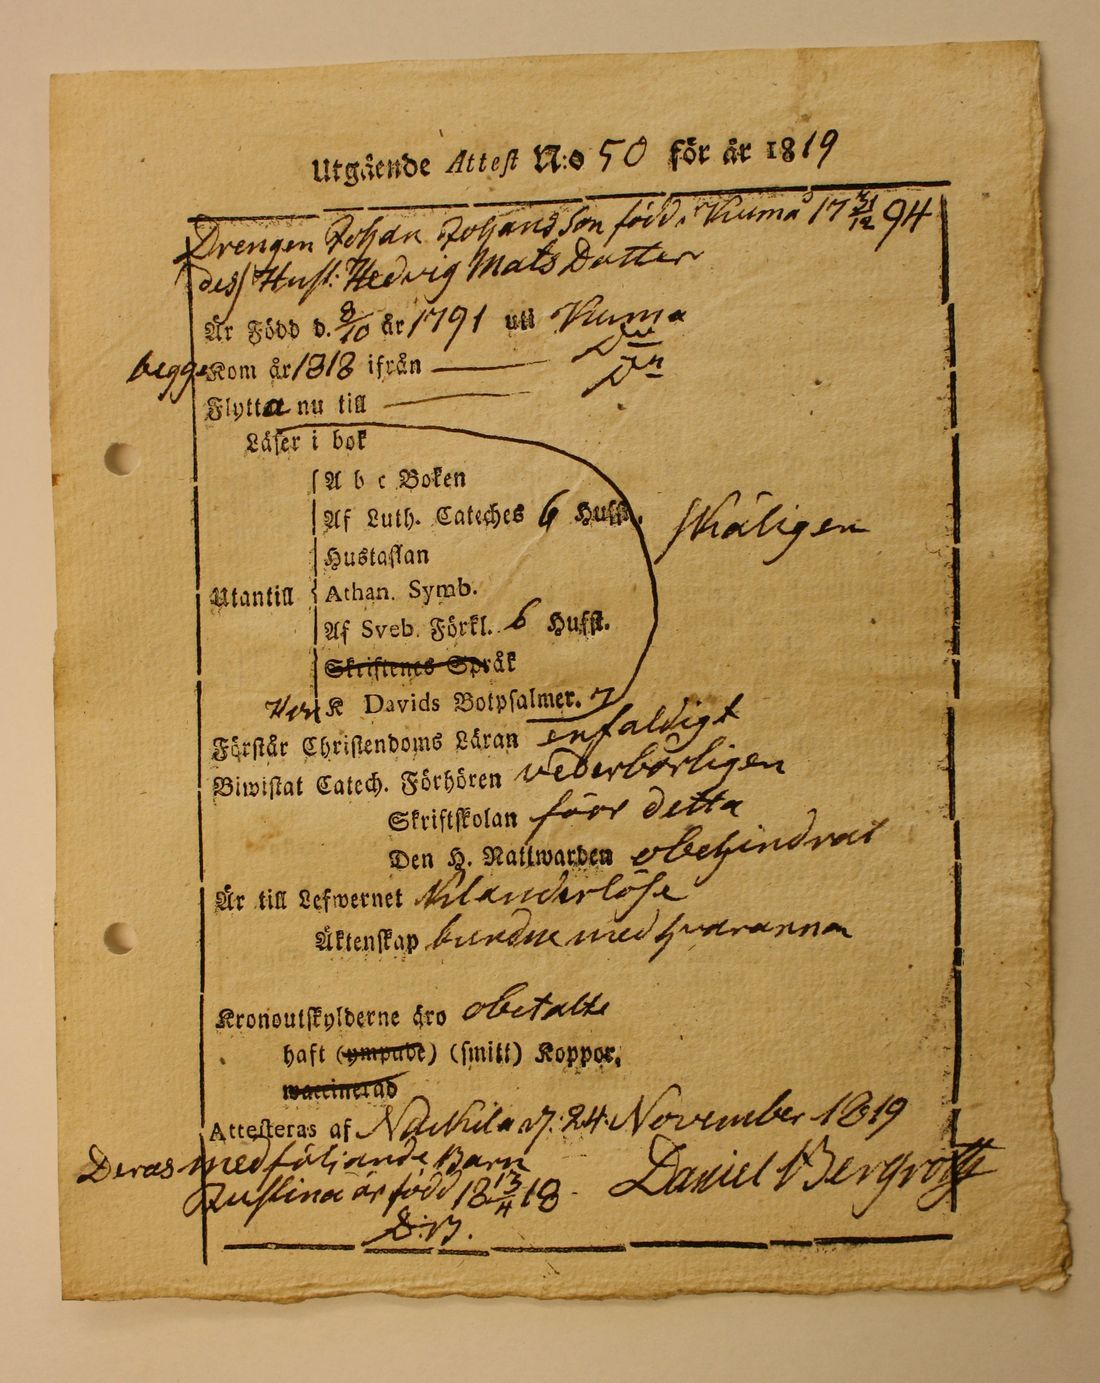 Utgående Attest N:o 50 för år 1819
Drengen Johan Johansson född i Kumo d 17 31/12 94
dess Hust: Hedvig Mats Dotter
Är Född d. 8/10 år 1791 uti Kumo
begge Kom år 1818 ifrån — Do
Flytta nu till — Do
Läser i bok
A b c Boken
Af Luth. Cateches 6 Hufst. skäligen
Hustaflan
Utantill Athan. Symb.
Af Sveb. Förkl. 6 Hufst.
Skriftenes Språk
K Davids Botpsalmer. 7
Förstår Christendoms Läran enfaldigt
Biwistat Catech. Förhören vederbörligen
Skriftskolan förr detta
Den H. Nattwarden obehindrat
Är till Lefwernet klanderlöse
Äktenskap bundne med hvarannan
Kronoutskylderne äro obetalte
haft (ympade) (smitt) Koppor,
waccinerad
Attesteras af Nackila d. 24 November 1819
Deras medföljande Barn Daniel Bergroth
Justina är född 18 13/4 18
D. B.